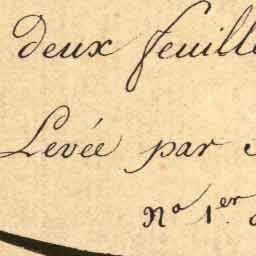 deux feuille
Levée par
Nº 1er.